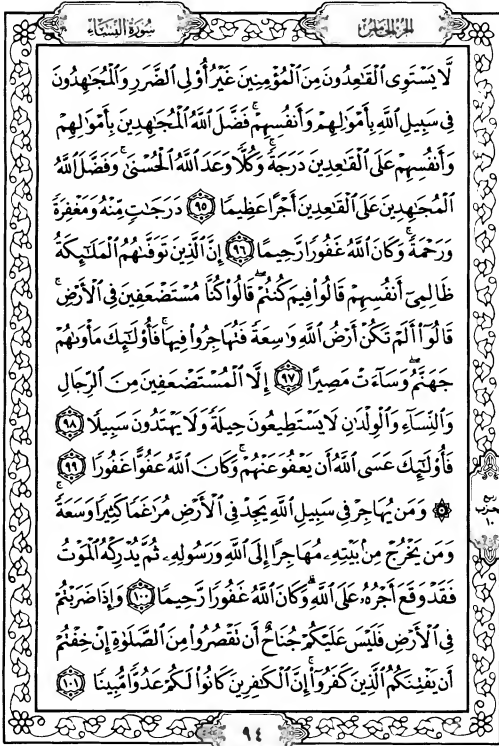 سُورَةُ النِّسَاءِ
الجُزْءُ الخَامِسُ
لَّا يَسْتَوِى الْقَاعِدُونَ مِنَ الْمُؤْمِنِينَ غَيْرُ أُو۟لِى الضَّرَرِ وَالْمُجَاهِدُونَ
فِى سَبِيلِ اللَّهِ بِأَمْوَالِهِمْ وَأَنفُسِهِمْ ۚ فَضَّلَ اللَّهُ الْمُجَاهِدِينَ بِأَمْوَالِهِمْ
وَأَنفُسِهِمْ عَلَى الْقَاعِدِينَ دَرَجَةً ۚ وَكُلًّا وَعَدَ اللَّهُ الْحُسْنَىٰ ۚ وَفَضَّلَ اللَّهُ
الْمُجَاهِدِينَ عَلَى الْقَاعِدِينَ أَجْرًا عَظِيمًا ٩٥ دَرَجَاتٍ مِّنْهُ وَمَغْفِرَةً
وَرَحْمَةً ۚ وَكَانَ اللَّهُ غَفُورًا رَّحِيمًا ٩٦ إِنَّ الَّذِينَ تَوَفَّاهُمُ الْمَلَائِكَةُ
ظَالِمِىٓ أَنفُسِهِمْ قَالُوا۟ فِيمَ كُنتُمْ ۖ قَالُوا۟ كُنَّا مُسْتَضْعَفِينَ فِى الْأَرْضِ ۚ
قَالُوٓا۟ أَلَمْ تَكُنْ أَرْضُ اللَّهِ وَاسِعَةً فَتُهَاجِرُوا۟ فِيهَا ۚ فَأُو۟لَـٰٓئِكَ مَأْوَاهُمْ
جَهَنَّمُ ۖ وَسَآءَتْ مَصِيرًا ٩٧ إِلَّا الْمُسْتَضْعَفِينَ مِنَ الرِّجَالِ
وَالنِّسَآءِ وَالْوِلْدَانِ لَا يَسْتَطِيعُونَ حِيلَةً وَلَا يَهْتَدُونَ سَبِيلًا ٩٨
فَأُو۟لَـٰٓئِكَ عَسَى اللَّهُ أَن يَعْفُوَ عَنْهُمْ ۚ وَكَانَ اللَّهُ عَفُوًّا غَفُورًا ٩٩
۞ وَمَن يُهَاجِرْ فِى سَبِيلِ اللَّهِ يَجِدْ فِى الْأَرْضِ مُرَاغَمًا كَثِيرًا وَسَعَةً ۚ
وَمَن يَخْرُجْ مِنۢ بَيْتِهِۦ مُهَاجِرًا إِلَى اللَّهِ وَرَسُولِهِۦ ثُمَّ يُدْرِكْهُ الْمَوْتُ
فَقَدْ وَقَعَ أَجْرُهُۥ عَلَى اللَّهِ ۗ وَكَانَ اللَّهُ غَفُورًا رَّحِيمًا ١٠٠ وَإِذَا ضَرَبْتُمْ
فِى الْأَرْضِ فَلَيْسَ عَلَيْكُمْ جُنَاحٌ أَن تَقْصُرُوا۟ مِنَ الصَّلَوٰةِ إِنْ خِفْتُمْ
أَن يَفْتِنَكُمُ الَّذِينَ كَفَرُوٓا۟ ۚ إِنَّ الْكَافِرِينَ كَانُوا۟ لَكُمْ عَدُوًّا مُّبِينًا ١٠١
ربع
حزب
١٠
٩٤